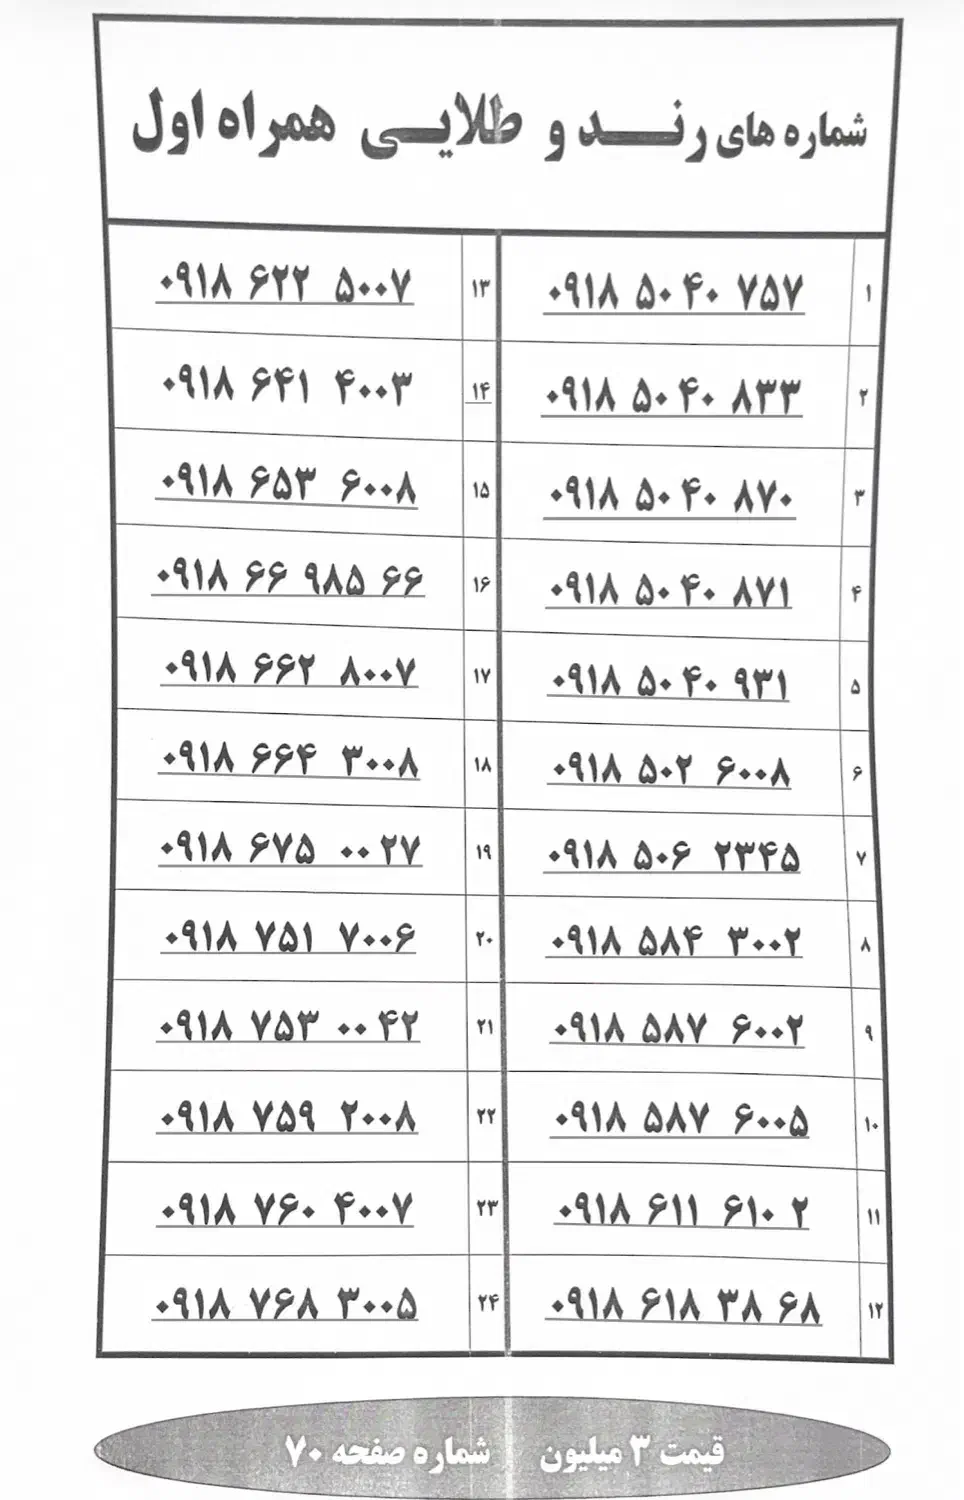 شماره های رند و طلایی همراه اول
۱ ۰۹۱۸ ۵۰ ۴۰ ۷۵۷
۲ ۰۹۱۸ ۵۰ ۴۰ ۸۳۳
۳ ۰۹۱۸ ۵۰ ۴۰ ۸۷۰
۴ ۰۹۱۸ ۵۰ ۴۰ ۸۷۱
۵ ۰۹۱۸ ۵۰ ۴۰ ۹۳۱
۶ ۰۹۱۸ ۵۰۲ ۶۰۰۸
۷ ۰۹۱۸ ۵۰۶ ۲۳۴۵
۸ ۰۹۱۸ ۵۸۴ ۳۰۰۲
۹ ۰۹۱۸ ۵۸۷ ۶۰۰۲
۱۰ ۰۹۱۸ ۵۸۷ ۶۰۰۵
۱۱ ۰۹۱۸ ۶۱۱ ۶۱۰ ۲
۱۲ ۰۹۱۸ ۶۱۸ ۳۸ ۶۸
۱۳ ۰۹۱۸ ۶۲۲ ۵۰۰۷
۱۴ ۰۹۱۸ ۶۴۱ ۴۰۰۳
۱۵ ۰۹۱۸ ۶۵۳ ۶۰۰۸
۱۶ ۰۹۱۸ ۶۶ ۹۸۵ ۶۶
۱۷ ۰۹۱۸ ۶۶۲ ۸۰۰۷
۱۸ ۰۹۱۸ ۶۶۴ ۳۰۰۸
۱۹ ۰۹۱۸ ۶۷۵ ۰۰ ۲۷
۲۰ ۰۹۱۸ ۷۵۱ ۷۰۰۶
۲۱ ۰۹۱۸ ۷۵۳ ۰۰ ۴۲
۲۲ ۰۹۱۸ ۷۵۹ ۲۰۰۸
۲۳ ۰۹۱۸ ۷۶۰ ۴۰۰۷
۲۴ ۰۹۱۸ ۷۶۸ ۳۰۰۵
قیمت ۳ میلیون شماره صفحه ۷۰